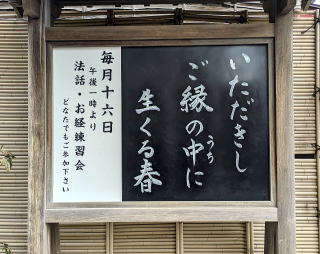 いただきし
ご縁の中に
うち
生くる春
毎月十六日
午後一時より
法話・お経練習会
どなたでもご参加下さい